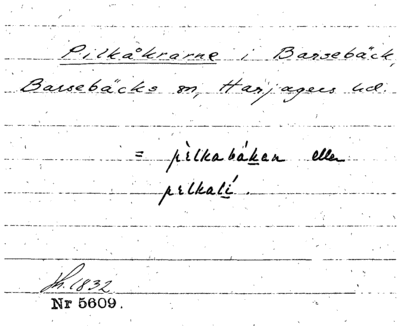 Pilkåkrarne i Barsebäck,
Barsebäcks sn, Harjagers hd.
= pilkabákan eller
pilkalí.
1832
Nr 5609.